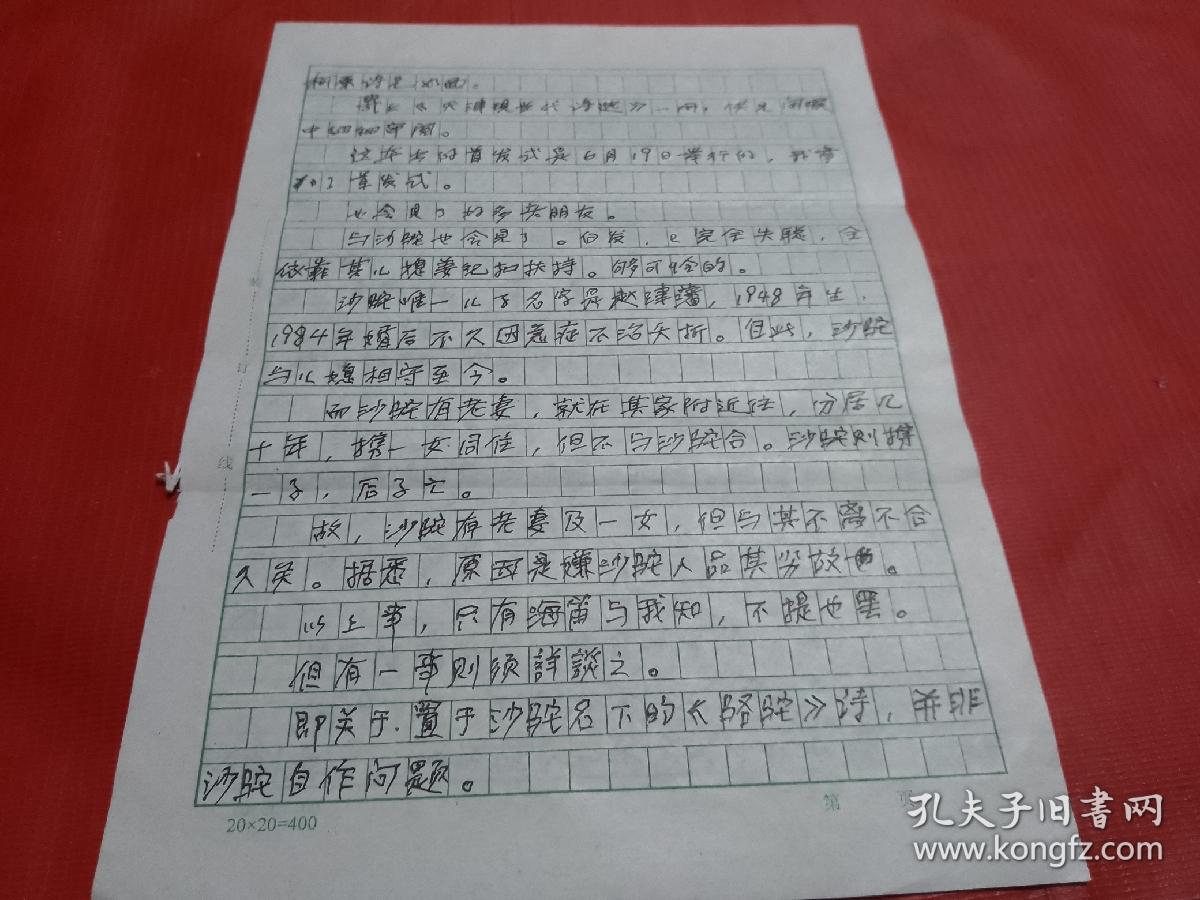 《天津现当代诗选》一
中细细审阅。
这本书的首发式是6月19日举行的,我
了首发式。
也会见了好多老朋友。
与沙驼也会见了。白发,已完全失聪,全
依靠其儿媳妻纪扣扶持。够可怜的。
沙驼唯一儿子名字是赵建藩,1948年生,
1984年婚后不久因急症不治夭折。但此,沙驼
与儿媳相守至今。
而沙驼有老妻,就在其家附近住,分居几
十年,携一女同住,但不与沙驼合。沙驼则携
一子,后子亡。
故,沙驼有老妻及一女,但与其不离不合
久矣。据悉,原因是嫌沙驼人品其劣故也。
以上事,只有海笛与我知,不提也罢。
但有一事则须詳談之。
即关于置于沙驼名下的《骆驼》诗,并非
沙驼自作问题。
20×20=400
第 页
线
订
孔夫子旧书网
www.kongfz.com